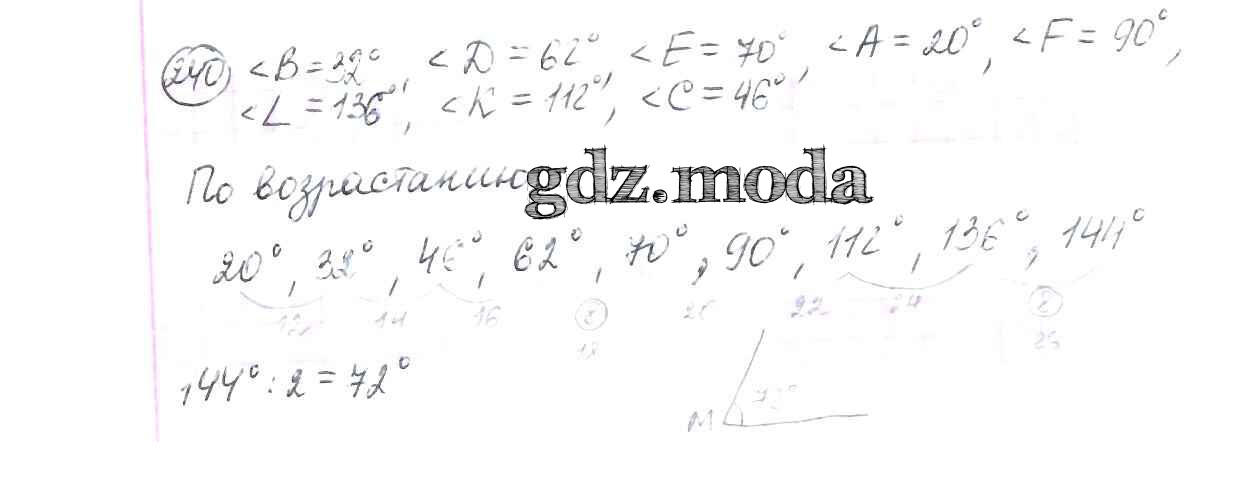 240, <B = 32°, <D = 62°, <E = 70°, <A = 20°, <F = 90°,
<L = 136°, <K = 112°, <C = 46°
По возрастанию
gdz.moda
20°, 32°, 46°, 62°, 70°, 90°, 112°, 136°, 144°
12 14 16 8 22 24 8
18
144° : 2 = 72°
72°
M